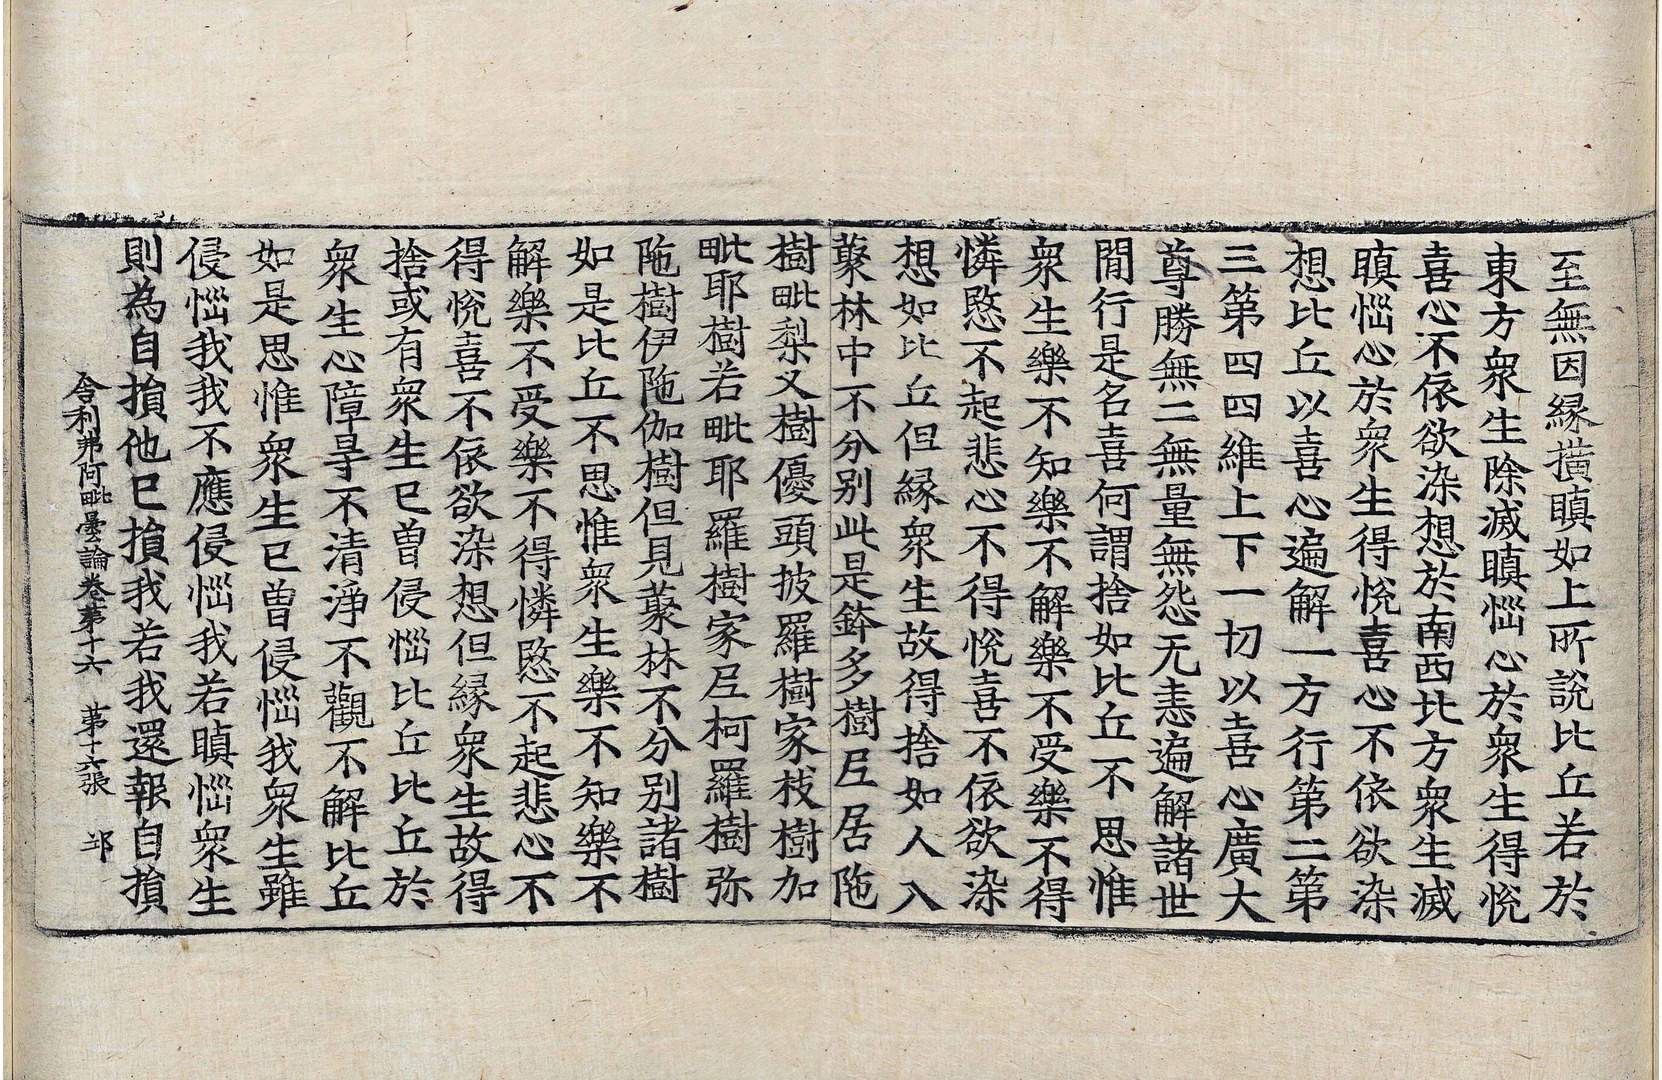 至無因縁撗瞋如上所說比丘若於
東方衆生除滅瞋惱心於衆生得悅
喜心不依欲染想於南西北方衆生滅
瞋惱心於衆生得悅喜心不依欲染
想比丘以喜心遍解一方行第二第
三第四四維上下一切以喜心廣大
尊勝無二無量無怨无恚遍解諸世
閒行是名喜何謂捨如比丘不思惟
衆生樂不知樂不解樂不受樂不得
憐愍不起悲心不得悅喜不依欲染
想如比丘但縁衆生故得捨如人入
藂林中不分别此是鉢多樹尼居陁
樹毗梨叉樹優頭披羅樹家枝樹加
毗耶樹若毗耶羅樹家尼柯羅樹弥
陁樹伊陁伽樹但見藂林不分别諸樹
如是比丘不思惟衆生樂不知樂不
解樂不受樂不得憐愍不起悲心不
得悅喜不依欲染想但縁衆生故得
捨或有衆生已曾侵惱比丘比丘於
衆生心障㝵不清淨不觀不解比丘
如是思惟衆生已曾侵惱我衆生雖
侵惱我我不應侵惱我若瞋惱衆生
則為自損他已損我若我還報自損
舍利弗阿毗曇論卷第十六 第十六張 𨚗